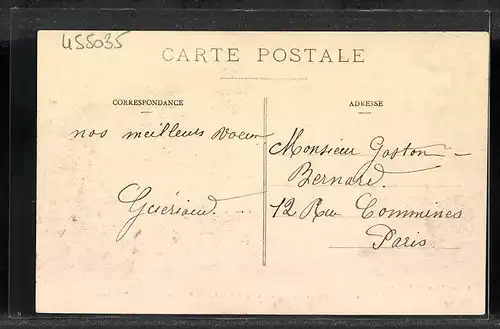 455035
CARTE POSTALE
CORRESPONDANCE
ADRESSE
nos meilleurs voeux
Monsieur Gaston
Bernard.
12 Rue Commines
Paris.